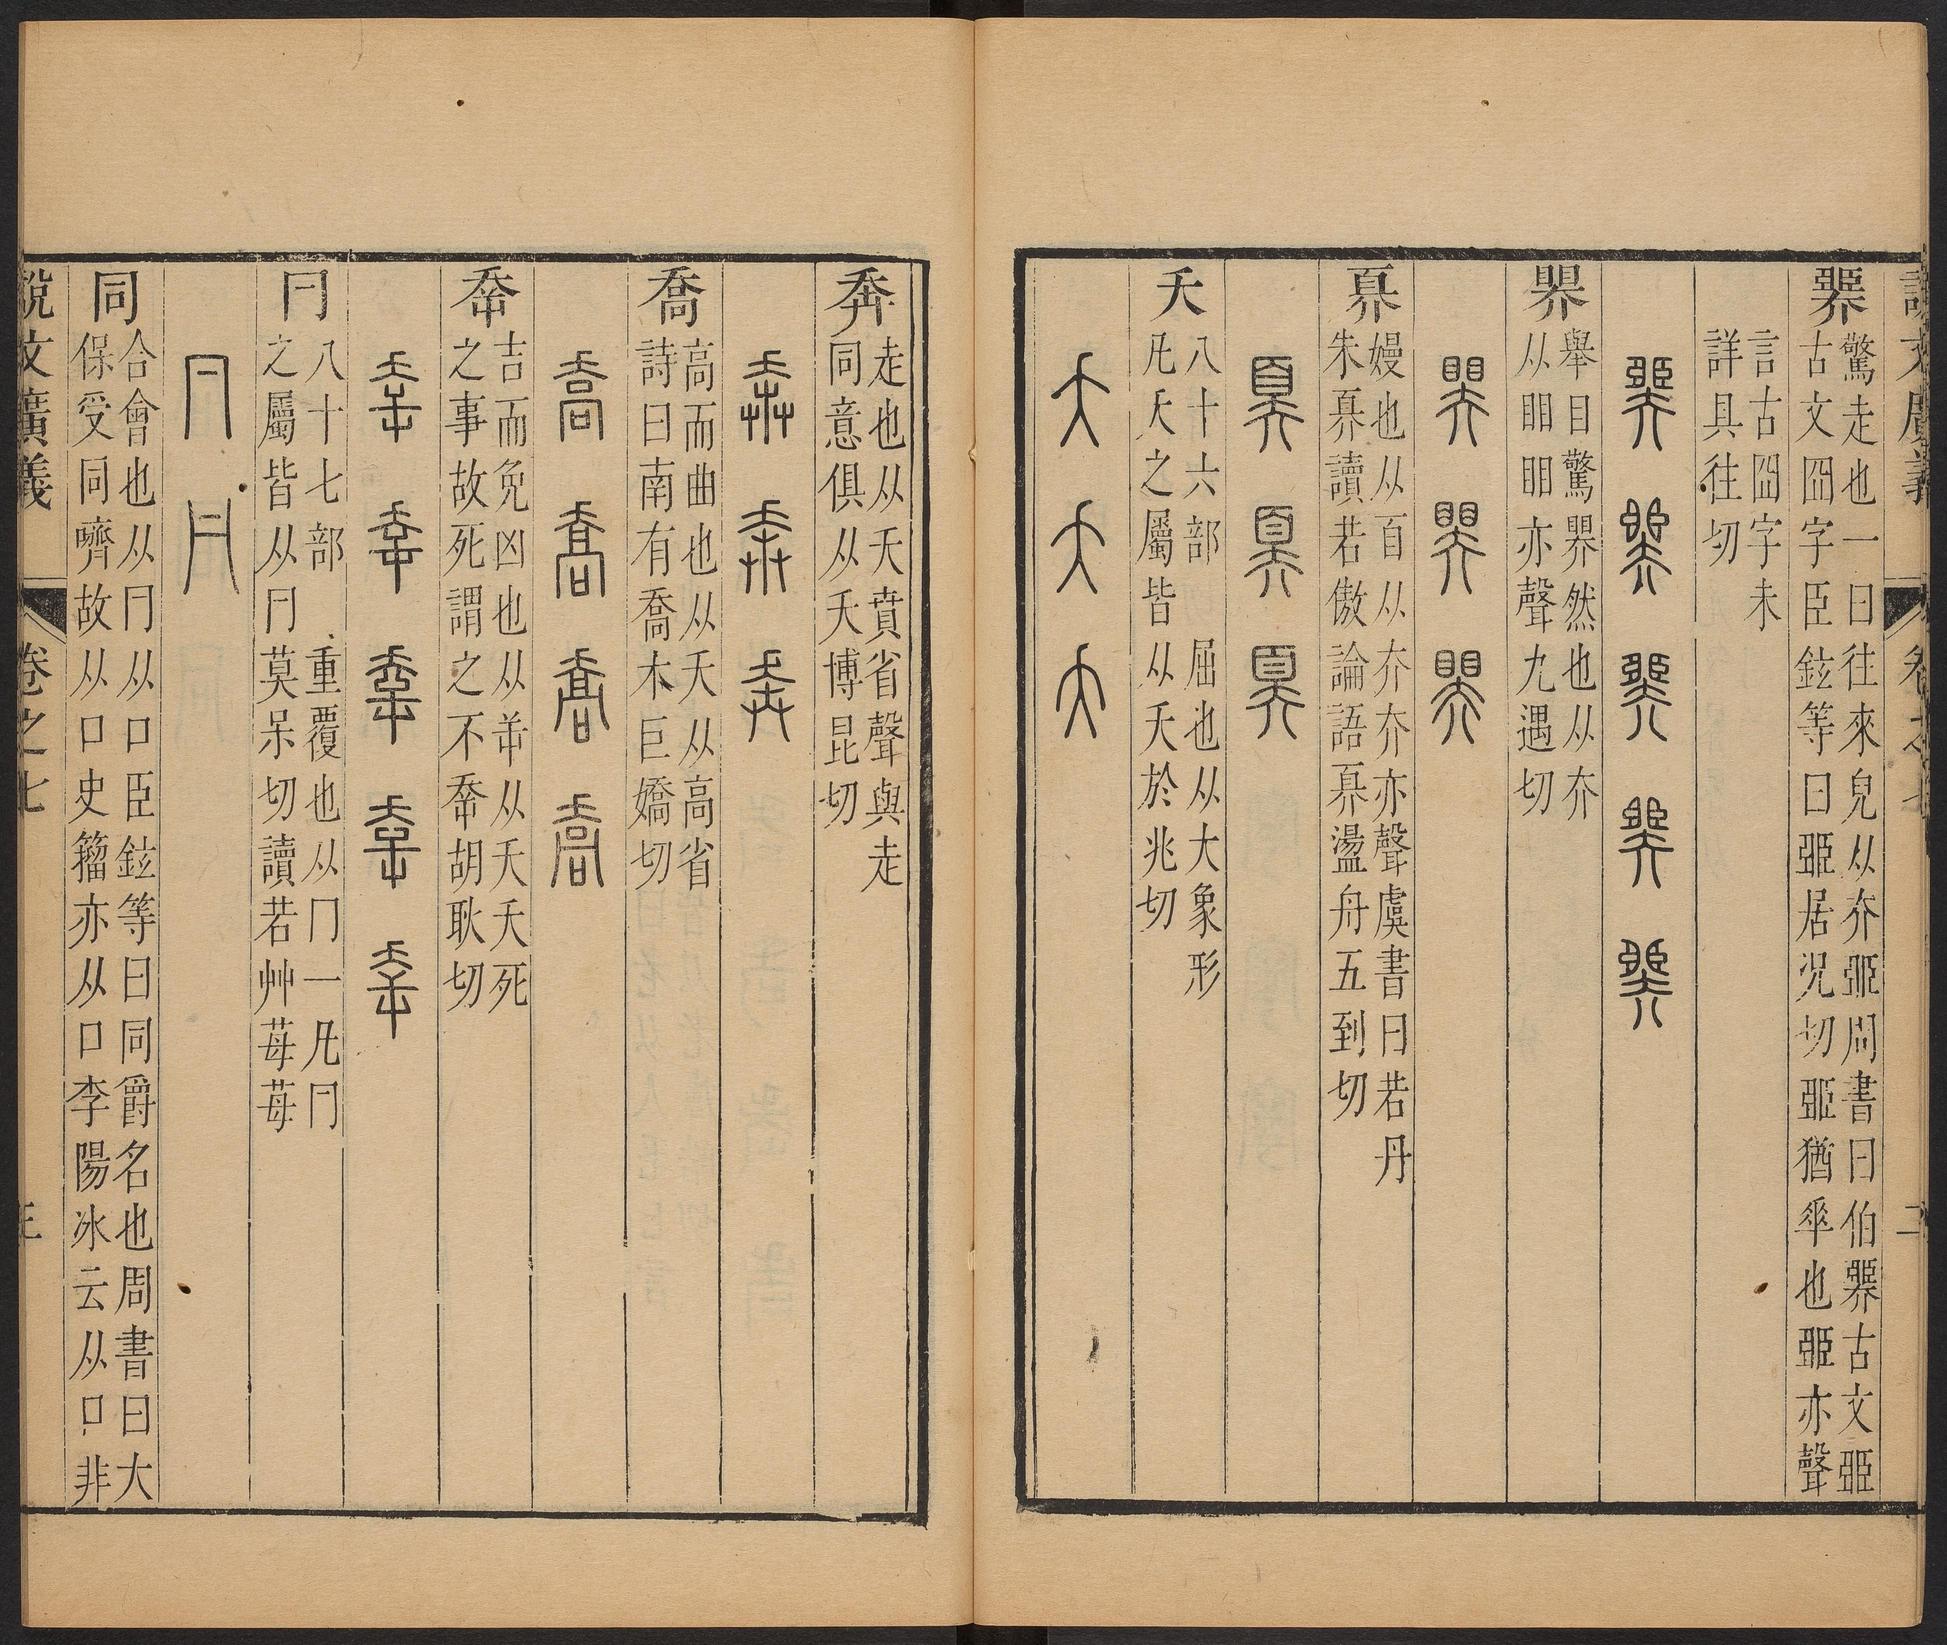 驚走也一曰往來皃从夰𦣧周書曰伯𦦶古文𦣧
古文囧字臣鉉等曰𦣧居況切𦣧猶乖也𦣧亦聲
言古囧字未
詳具往切
界
舉目驚界然也从夰
从䀠䀠亦聲九遇切
奡
嫚也从百从夰夰亦聲虞書曰若丹
朱奡讀若傲論語奡盪舟五到切
夭
八十六部 屈也从大象形
凡夭之屬皆从夭於兆切
奔
走也从夭賁省聲與走
同意俱从夭博昆切
喬
高而曲也从夭从高省
詩曰南有喬木巨嬌切
㚔
吉而免凶也从屰从夭夭死
之事故死謂之不㚔胡耿切
冃
八十七部 重覆也从冂一凡冃
之屬皆从冃莫呆切讀若艸苺苺
同
合會也从冃从口臣鉉等曰同爵名也周書曰大
保受同嚌故从口史籀亦从口李陽冰云从口非
說文廣義 卷之七 三